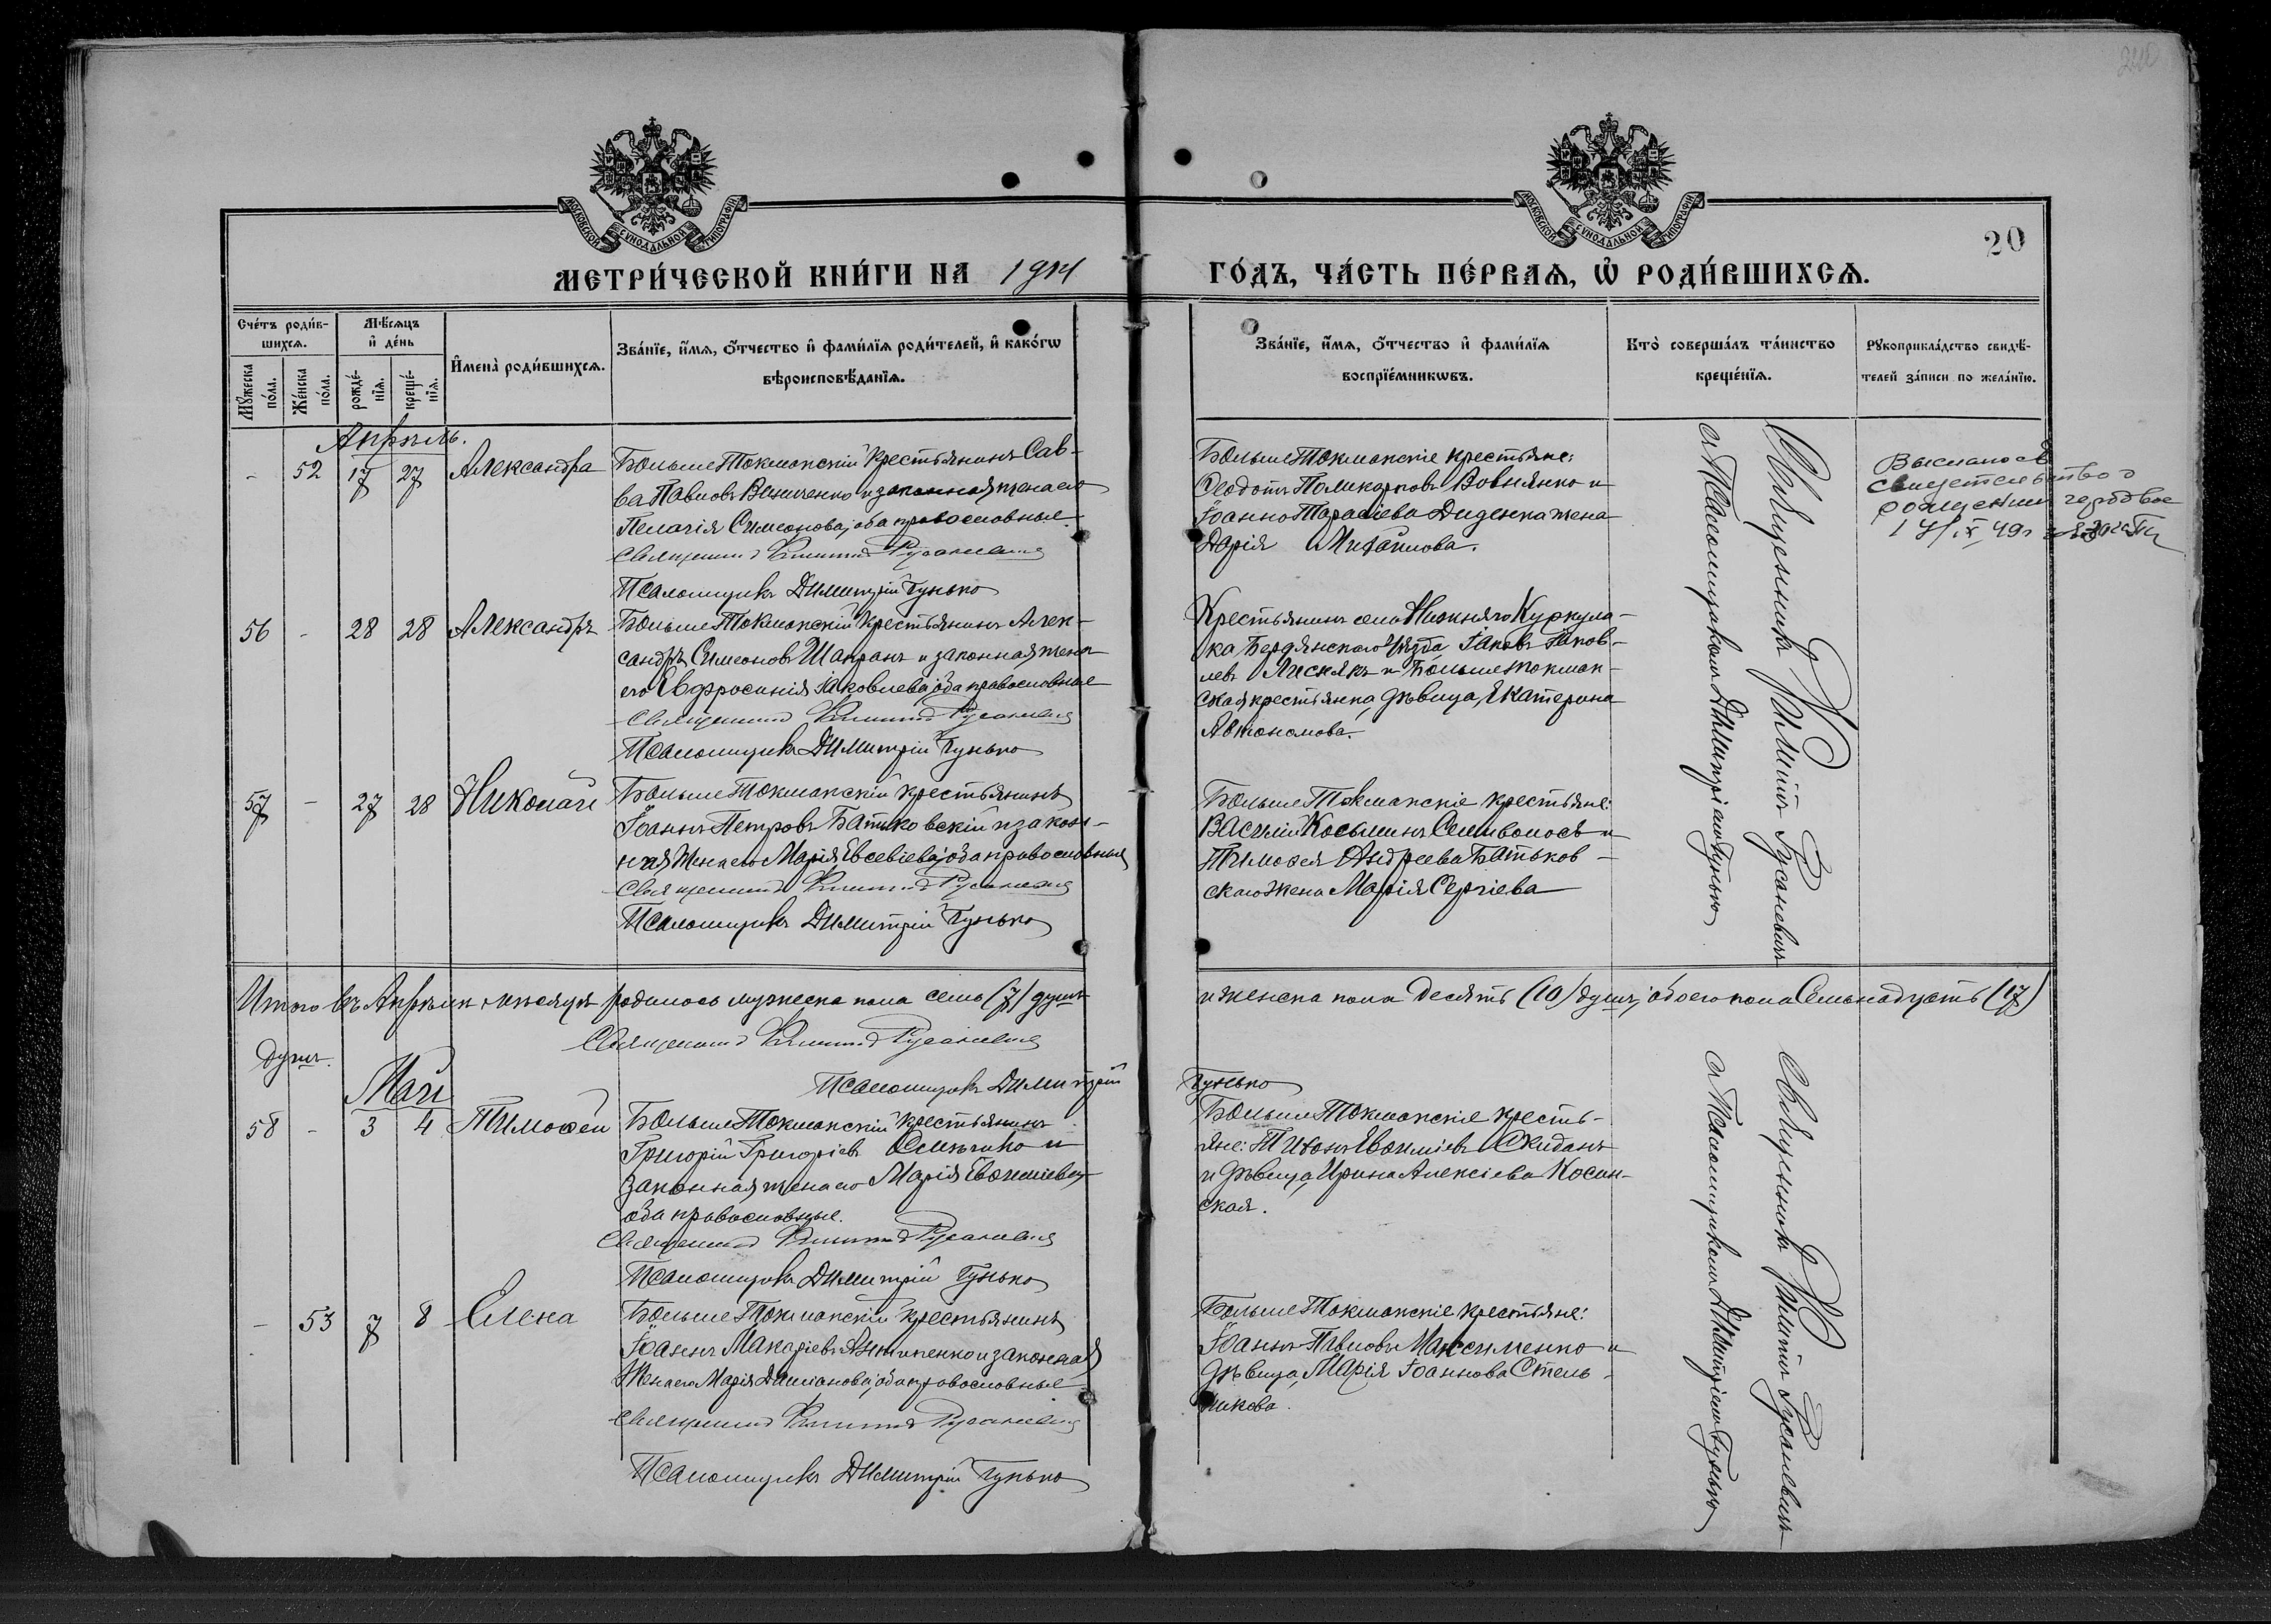 240
20
МОСКОВСКОЙ СѴНОДАЛЬНОЙ ТИПОГРАФІИ
МОСКОВСКОЙ СѴНОДАЛЬНОЙ ТИПОГРАФІИ
МЕТРИ́ЧЕСКОЙ КНИ́ГИ НА 1914 ГО́ДЪ, ЧА́СТЬ ПЕ́РВАѦ, Ѡ҆ РОДИ́ВШИХСѦ.
Сче́тъ роди́в-
шихсѧ.
Мꙋ́жеска по́ла.
Же́нска по́ла.
Мѣ́сѧцъ
и҆ де́нь
рожде́-
нїѧ.
креще́-
нїѧ.
И҆мена̀ роди́вшихсѧ.
Зва́нїе, и҆́мѧ, ѻ҆́тчество и҆ фами́лїѧ роди́телей, и҆ како́гѡ
вѣроисповѣ́данїѧ.
Зва́нїе, и҆́мѧ, ѻ҆́тчество и҆ фами́лїѧ
воспрїе́мникѡвъ.
Кто̀ соверша́лъ та́инство
креще́нїѧ.
Рꙋкоприкла́дство свидѣ́-
телей за́писи по жела́нїю.
Апрѣль.
- 52 17 27 Александра
БольшеТокмакскій крестьянинъ Сав-
ва Павловъ Винниченко и законная жена его
Пелагія Симеонова, оба православные.
Священникъ Филиппъ Русаневичъ
Псаломщикъ Димитрій Гунько
БольшеТокмакскіе крестьяне:
Ѳеодотъ Поликарповъ Вовнянко и
Іоанна Тарасіева Диденка жена
Дарія Михайлова.
Выслано
свидетельство о
рождении гербовое
56 - 28 28 Александръ
БольшеТокмакскій крестьянинъ Алек-
сандръ Симеоновъ Шапранъ и законная жена
его Евфросинія Іаковлева, оба православные
Священникъ Филиппъ Русаневичъ
Псаломщикъ Димитрій Гунько
Крестьянинъ села Нижняго Куркула-
ка Бердянскаго уѣзда Іаковъ Іаков-
левъ Лисякъ и Большетокмак-
ская крестьянка, дѣвица, Екатерина
Автономова.
57 - 27 28 Николай
БольшеТокмакскій крестьянинъ
Іоаннъ Петровъ Батьковскій и закон-
ная жена его Марія Евсевіева, оба православные
Священникъ Филиппъ Русаневичъ
Псаломщикъ Димитрій Гунько
БольшеТокмакскіе крестьяне:
Василій Косьминъ Семиволосъ и
Тимоѳея Андреева Батьков-
скаго жена Марія Сергіева
Священникъ Филиппъ Русаневичъ
съ Псаломщикомъ Димитріемъ Гунько
Итого въ Апрѣлѣ мѣсяцѣ родилось мужеска пола семь (7) душъ и женска пола десять (10) душъ, обоего пола Семнадцать (17)
душъ.
Священникъ Филиппъ Русаневичъ
Псаломщикъ Димитрій Гунько
Май
58 - 3 4 Тимоѳей
БольшеТокмакскій крестьянинъ
Григорій Григоріевъ и
законная жена его Марія Евѳиміева,
оба православные.
Священникъ Филиппъ Русаневичъ
Псаломщикъ Димитрій Гунько
БольшеТокмакскіе кресть-
яне: Титъ Евѳиміевъ Скиданъ
и дѣвица, Ирина Алексіева Косин-
ская.
- 53 7 8 Елена
БольшеТокмакскій крестьянинъ
Іоаннъ Макаріевъ Антипенко и законная
жена его Марія Даміанова, оба православные
Священникъ Филиппъ Русаневичъ
Псаломщикъ Димитрій Гунько
БольшеТокмакскіе крестьяне:
Іоаннъ Павловъ Максименко и
дѣвица, Марія Іоаннова Стель-
никова.
Священникъ Филиппъ Русаневичъ
съ Псаломщикомъ Димитріемъ Гунько